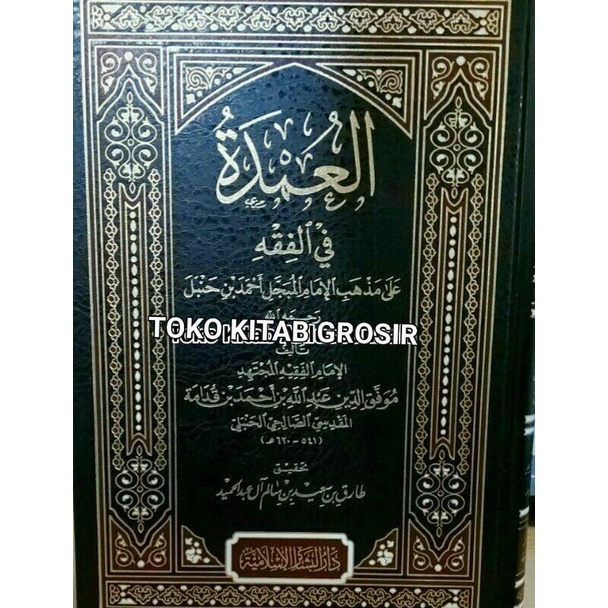 العُمْدَةُ
في الفِقْهِ
عَلَى مَذْهَبِ الإِمَامِ المُبَجَّل أَحْمَد بْن حَنْبَل
رحمه الله
TOKO KITAB GROSIR
تأليف
الإمام الفقيه المجتهد
مُوَفَّق الدِّين عَبْد اللَّه بْن أَحْمَد بْن قُدَامَة
المقدسي الصالحي الحنبلي
(٥٤١ - ٦٢٠هـ)
تحقيق
طارق بن سعيد بن سالم آل عبد الحميد
دار البشائر الإسلامية